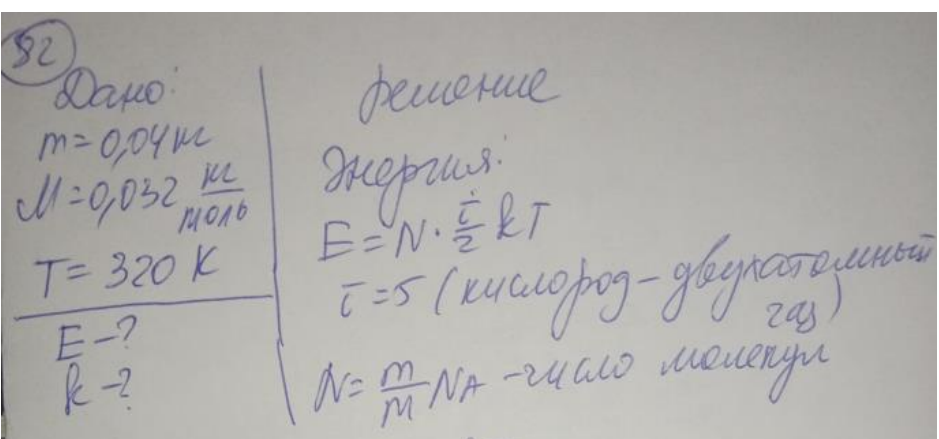 82
Дано:
m=0,04 кг
M=0,032 кг/моль
T=320 K
E-?
k-?
Решение
Энергия:
E=N·i/2 kT
i=5 (кислород-двухатомный
газ)
N=m/M NA -число молекул